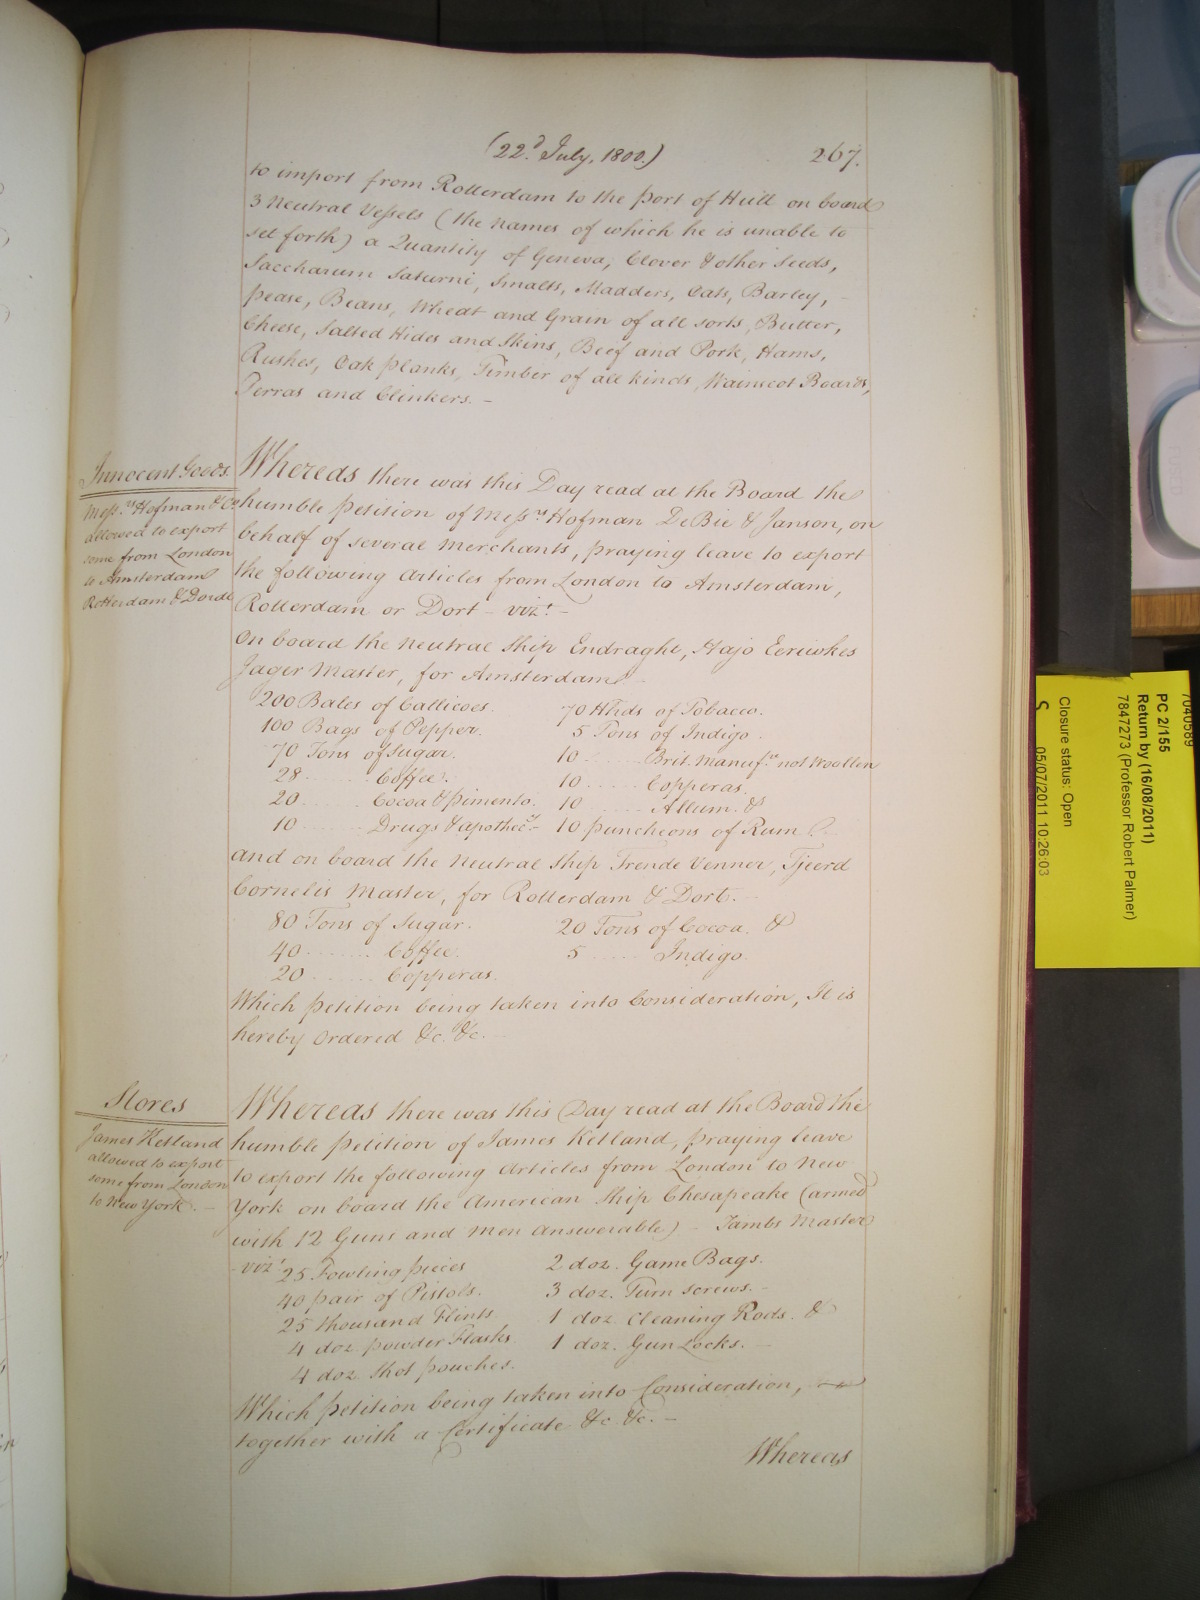 (22.d July, 1800.) 267.
to import from Rotterdam to the port of Hull on board
3 Neutral Vessels (the names of which he is unable to
set forth) a Quantity of Geneva, Clover & other Seeds,
Saccharum Saturni, Smalts, Madders, Oats, Barley, -
pease, Beans, Wheat and Grain of all sorts, Butter,
Cheese, Salted Hides and Skins, Beef and Pork, Hams,
Rushes, Oak planks, Timber of all kinds, Wainscot Boards,
Terras and Clinkers. -
Innocent Goods.
Mess.rs Hofman & Co
allowed to export
some from London
to Amsterdam
Rotterdam & Dordt
Whereas there was this Day read at the Board the
humble petition of Mess.rs Hofman DeBie & Janson, on
behalf of several Merchants, praying leave to export
the following Articles from London to Amsterdam,
Rotterdam or Dort - viz.t -
On board the Neutral Ship Endraght, Hajo Eeriwkes
Jager Master, for Amsterdam -
200 Bales of Callicoes. 70 Hhds of Tobacco.
100 Bags of Pepper. 5 Tons of Indigo.
70 Tons of Sugar. 10 ..... Brit. Manuf.re not Woollen
28 ..... Coffee. 10 ..... Copperas.
20 ..... Cocoa & Pimento. 10 ..... Allum. &
10 ..... Drugs & apothec.y - 10 puncheons of Rum
And on board the Neutral Ship Trende Venner, Tjeerd
Cornelis Master, for Rotterdam & Dort. -
80 Tons of Sugar. 20 Tons of Cocoa. &
40 ..... Coffee. 5 ..... Indigo.
20 ..... Copperas.
Which petition being taken into Consideration, It is
hereby Ordered &c. &c. -
Stores
James Ketland
allowed to export
some from London
to New York. -
Whereas there was this Day read at the Board the
humble petition of James Ketland, praying leave
to export the following Articles from London to New
York on board the American Ship Chesapeake (armed
with 12 Guns and Men answerable) - Tambs Master
- viz.t
25 Fowling pieces 2 doz. Game Bags.
40 pair of Pistols. 3 doz. Turn screws. -
25 thousand Flints 1 doz. Cleaning Rods. &
4 doz powder Flasks 1 doz. Gun Locks. -
4 doz Shot pouches.
Which petition being taken into Consideration,
together with a Certificate &c &c. -
Whereas
7040589
PC 2/155
Return by (16/08/2011)
7847273 (Professor Robert Palmer)
Closure status: Open
S 05/07/2011 10:26:03